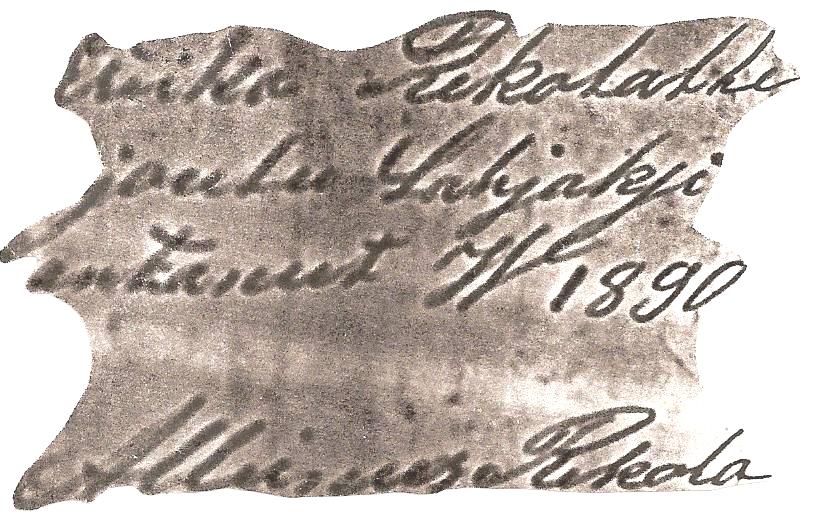 Erika Rekolalle
joulu Lahjaksi
antanut W 1890
Miinus Rekola